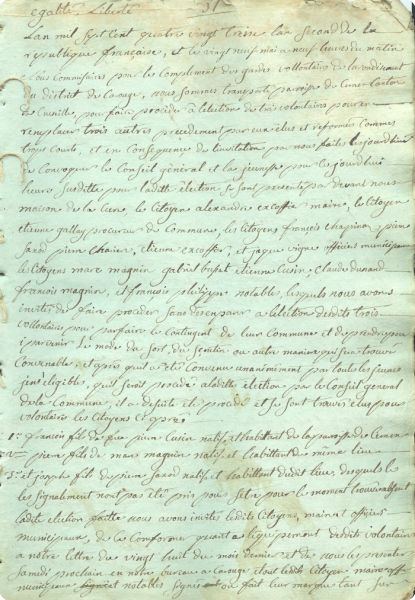 egalité Liberté 31
L'an mil sept cent quatre vingt treize l'an second de la
republique francoise, et le vingt neuf mai a neuf heures du matin
Nous Commissaires pour le Complement des gardes volontaire de l'arrondissement
du district de Carouge, nous sommes transporté paroisse de Cernex Canton
de Cruseille pour faire proceder a l'election de trois volontaires pour en
remplacer trois autres precedement par eux elus et reformés comme
trop Courts, et en Consequence de l'invitation par nous faites
de Convoquer le Conseil général et la jeunesse pour ce jourdhui
lieux susditte pour laditte election se sont presentés par devant nous
maison de la Cure, le Citoyen alexandre excoffier maire, le Citoyen
etienne gallay procureur de Commune, les Citoyens françois chapinon, pierre
Jacod pierre etienne excoffier, et jaque vigne officiers municipaux
les Citoyens marc magnin gabriel etienne Cusin, Claude dunand
francois magnin, et francois philippe notable, lesquels nous avons
invités de faire proceder sans desemparer a l'election desdits trois
volontaires pour parfaire le Contingent de leur Commune et de prendre pour
i parvenir le mode du sort, du scrutin ou autre maniere qui sera trouvé
Convenable, et après qu'il a été Convenu unanimement par toute les jeunes
gens eligible, qu'il seroit procedé a laditte election par le Conseil general
de la Commune, il a desuite été procedé et se sont trouvés elus pour
volontaires les Citoyens Cy après
1° francois fils de feu pierre Cusin natif, et habittant de la paroisse de Cernex
pierre fils de marc magnin natif, et habittant de même lieu
3° et joseph fils de pierre Jacod natif et habittant dudit lieu, desquels
les signalement n'ont pas été pris pour
laditte election faitte nous avons invités lesdits Citoyens, maire et officiers
municipaux, de la Conformé desdits volontaires
a notre lettre du vingt huit du mois dernier et de nous les presenter
Samedi prochain en notre bureau a Carouge et lesdits Citoyens maire off
municipaux et notables signés ou fait leur marque tant sur